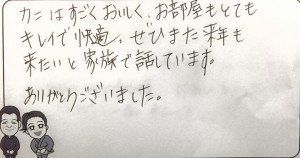 カニはすごくおいしく、お部屋もとても
キレイで快適、ぜひまた来年も
来たいと家族で話しています。
ありがとうございました。